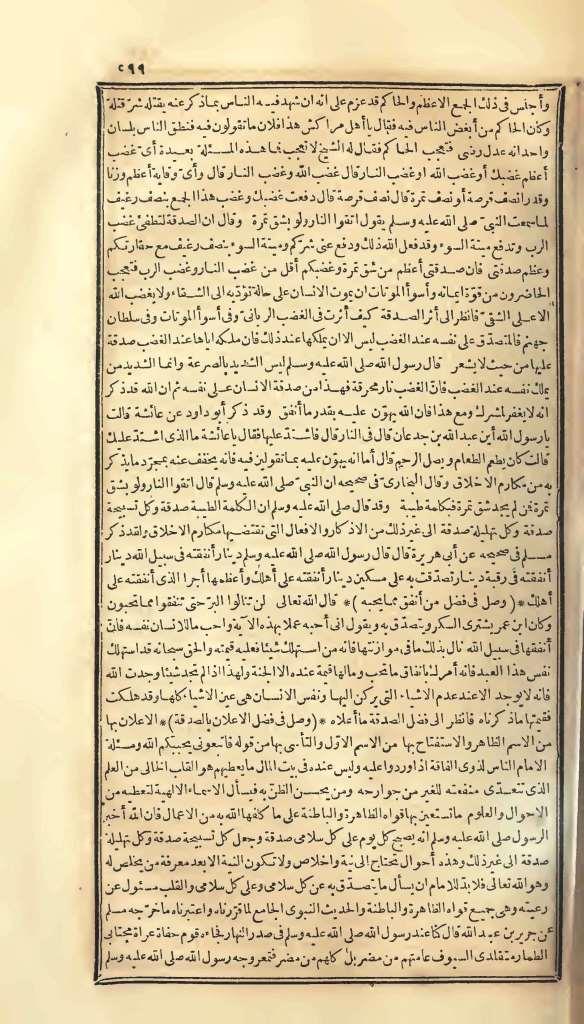 ٢٩٩
وأجلس في ذلك الجمع الاعظم والحاكم قد عزم على انه ان شهد فيه الناس بما ذكر عنه يقتله شر قتلة
وكان الحاكم من أبغض الناس فيه فقال يا أهل مراكش هذا فلان ما تقولون فيه فنطق الناس بلسان
واحد انه عدل رضى فتعجب الحاكم فقال له الشيخ لا تعجب فما هذه المسئلة بعيدة أي غضب
أعظم غضبك أو غضب الله أو غضب النار قال غضب الله وغضب النار قال وأي وقاية أعظم وزنا
وقدرا نصف قرصة أو نصف تمرة قال نصف قرصة قال دفعت غضبك وغضب هذا الجمع بنصف رغيف
لما سمعت النبي صلى الله عليه وسلم يقول اتقوا النار ولو بشق تمرة وقال ان الصدقة لتطفئ غضب
الرب وتدفع ميتة السوء وقد فعل الله ذلك ودفع عني شركم وميتة السوء بنصف رغيف مع حقارتكم
وعظم صدقتي فان صدقتي أعظم من شق تمرة وغضبكم أقل من غضب النار وغضب الرب فتعجب
الحاضرون من قوة ايمانه وأسوأ الموتات ان يموت الانسان على حالة تؤديه الى الشقاء ولا يغضب الله
الا على الشقي فانظر الى أثر الصدقة كيف أثرت في الغضب الرباني وفي أسوأ الموتات وفي سلطان
جهنم فالمتصدق على نفسه عند الغضب ليس الا ان يملكها عند ذلك فان ملكه اياها عند الغضب صدقة
عليها من حيث لا يشعر قال رسول الله صلى الله عليه وسلم ليس الشديد بالصرعة وانما الشديد من
يملك نفسه عند الغضب فان الغضب نار محرقة فهذا من صدقة الانسان على نفسه ثم ان الله قد ذكر
انه لا يغفر لمشرك ومع هذا فان الله يهوّن عليه بقدر ما أنفق وقد ذكر أبو داود عن عائشة قالت
يا رسول الله أين عبد الله بن جدعان قال في النار قال فاشتد عليها فقال يا عائشة ما الذى اشتد عليك
قالت كان يطعم الطعام ويصل الرحم قال أما انه يهوّن عليه بما تقولين فيه فانه يخفف عنه بمجرد ما يذكر
به من مكارم الاخلاق وقال البخارى في صحيحه ان النبي صلى الله عليه وسلم قال اتقوا النار ولو بشق
تمرة فمن لم يجد شق تمرة فبكلمة طيبة وقد قال صلى الله عليه وسلم ان الكلمة الطيبة صدقة وكل تسبيحة
صدقة وكل تهليلة صدقة الى غير ذلك من الاذكار والافعال التى تقتضيها مكارم الاخلاق ولقد ذكر
مسلم في صحيحه عن أبي هريرة قال قال رسول الله صلى الله عليه وسلم دينار أنفقته في سبيل الله دينار
أنفقته في رقبة دينار تصدقت به على مسكين دينار أنفقته على أهلك وأعظمها أجرا الذى أنفقته على
أهلك * (وصل في فضل من أنفق مما يحبه) * قال الله تعالى لن تنالوا البرّ حتى تنفقوا مما تحبون
وكان ابن عمر يشترى السكر ويتصدق به ويقول اني أحبه عملا بهذه الآية وأحب ما للانسان نفسه فان
أنفقها في سبيل الله نال بذلك ما في موازنتها فانه من استهلك شيئا فعليه قيمته والحق سبحانه قد استهلك
نفس هذا العبد فانه أمرك بانفاق ما تحب وما لها قيمة عنده الا الجنة ولهذا اذا لم تجد شيئا وجدت الله
فانه لا يوجد الا عند عدم الاشياء التى يركن اليها ونفس الانسان هي عين الاشياء كلها وقد هلكت
فقيمتها ما ذكرناه فانظر الى فضل الصدقة ما أعلاه * (وصل في فضل الاعلان بالصدقة) * الاعلان بها
من الاسم الظاهر والاستفتاح بها من الاسم الاوّل والتأسي بها من قوله فاتبعوني يحببكم الله ومسئلة
الامام الناس لذوى الفاقة اذا وردوا عليه وليس عنده في بيت المال ما يعطيهم هو القلب الخالي من العلم
الذى تتعدّى منفعته للغير من جوارحه ومن يحسن الظن به فيسأل الاسماء الالهية لتعطيه من
الاحوال والعلوم ما تستعين بها قواه الظاهرة والباطنة على ما كلفها الله به من الاعمال فان الله أخبر
الرسول صلى الله عليه وسلم انه يصبح كل يوم على كل سلامى صدقة وجعل كل تسبيحة صدقة وكل تهليلة
صدقة الى غير ذلك وهذه أحوال تحتاج الى نية واخلاص ولا تكون النية الا بعد معرفة من يخلص له
وهو الله تعالى فلا بد للامام ان يسأل ما يتصدق به عن كل سلامى وعلى كل سلامى والقلب مسئول عن
رعيته وهي جميع قواه الظاهرة والباطنة والحديث النبوى الجامع لما قررناه واعتبرناه ما خرّجه مسلم
عن جرير بن عبد الله قال كنا عند رسول الله صلى الله عليه وسلم في صدر النهار فجاءه قوم حفاة عراة مجتابي
النمار متقلدى السيوف عامتهم من مضر بل كلهم من مضر فتمعر وجه رسول الله صلى الله عليه وسلم